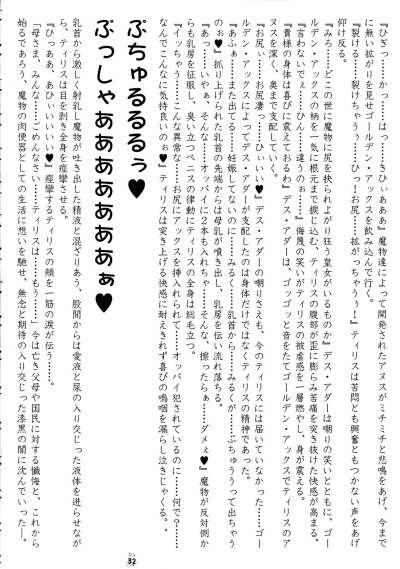 『ひぎっ……かっ……はっ……きひぃぁああ』魔物達によって開発されたアヌスがミチミチと悲鳴をあげ、今まで
に無い拡がりを見せゴールデン・アックスを飲み込んで行く。
『裂ける……裂けちゃうぅ……ひっ！お尻……拡がっちゃうぅ！』ティリスは苦悶とも興奮ともつかない声をあげ
仰け反る。
『みろ……どこの世に魔物に尻を抉られよがり狂う皇女がいるものか』デス・アダーは嘲りの笑いとともに、ゴー
ルデン・アックスの柄を一気に根元まで捩じ込む、ティリスの腹部が歪に膨らみ苦痛を突き抜けた快感が高まる。
『言わないでぇ……ひん……違うのぉ……』侮蔑の笑いがティリスの被虐感を一層燃やし、身が震える。
『貴様の身体は喜びに震えておるわ』デス・アダーは、ゴツゴツと音をたてゴールデン・アックスでティリスのア
ヌスを深く、奥まで支配していく。
『お尻ぃ……お尻凄っ……ひぃいい♥』デス・アダーの嘲りさえも、今のティリスには届いていなかった……ゴー
ルデン・アックスによってデス・アダーが支配したのは身体だけではなくティリスの精神であった。
『あふぁ……また出てる……妊娠してないのに……みるく……乳首から……みるくが……ぷちゅうぅって出ちゃう
のぉ♥』抓り上げられた乳首の先端からは母乳が噴き出し、乳房を伝い流れ落ちる。
『あっ……いやぁ……そんな……オッパイに２本も入れちゃ……そんな、擦ったらぁ……ダメぇ♥』魔物が反対側か
らも乳房を征服し、臭い立つペニスの律動にティリスの全身は総毛立つ。
『イッちゃう……こんな異常な……お尻にアックスを挿入れられて……オッパイ犯されているのに……何で？……
なんでこんなに気持良いのぉ♥』ティリスは突き上げる快感に耐えきれず喜びの嗚咽を漏らし泣きじゃくる。
ぷちゅるるるぅ♥
ぷっしゃああああああぁ♥
乳首から激しく射乳し魔物が吐き出した精液と混ざりあう、股間からは愛液と尿の入り交じった液体を迸らせなが
ら、ティリスは目を剥き全身を痙攣させる。
『ひっぁあ、あひぃいいい♥』痙攣するティリスの顔を一筋の涙が伝う……。
「母さま、みんな……ごめんなさい……ティリスは……もう……」今は亡き父母や国民に対する懺悔と、これから
始るであろう、魔物の肉便器としての生活に想いを馳せ、無念と期待の入り交じった漆黒の闇に沈んでいった―。
32